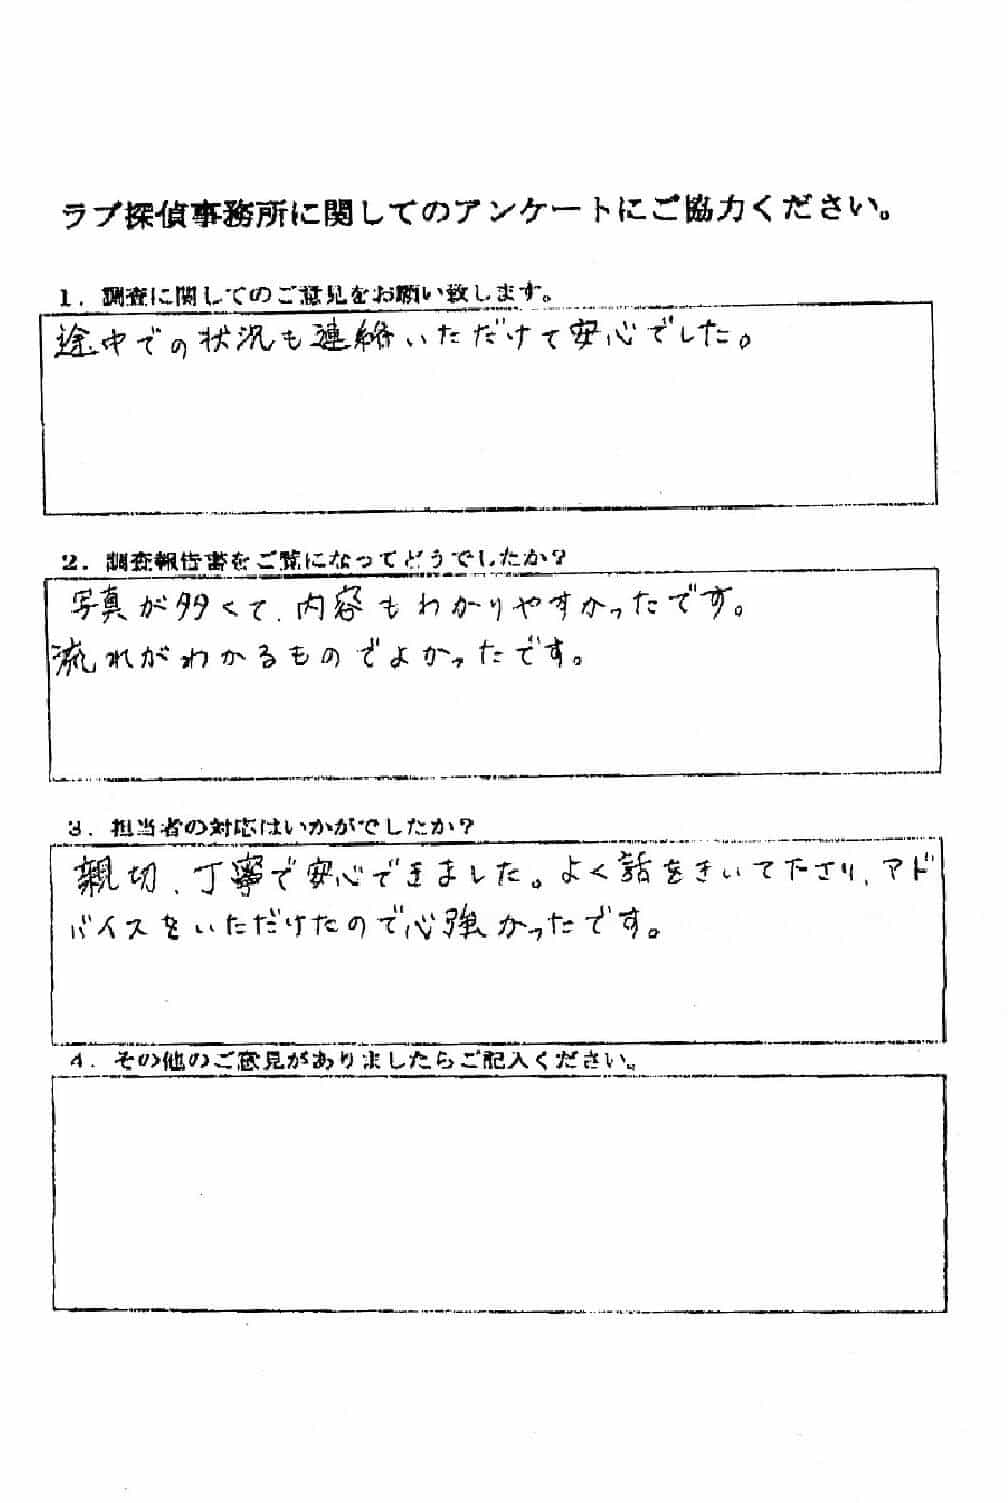 ラブ探偵事務所に関してのアンケートにご協力ください。
1．調査に関してのご意見をお願い致します。
途中での状況も連絡いただけて安心でした。
2．調査報告書をご覧になってどうでしたか？
写真が多くて、内容もわかりやすかったです。
流れがわかるものでよかったです。
3．担当者の対応はいかがでしたか？
親切、丁寧で安心できました。よく話をきいて下さり、アド
バイスをいただけたので心強かったです。
4．その他のご意見がありましたらご記入ください。